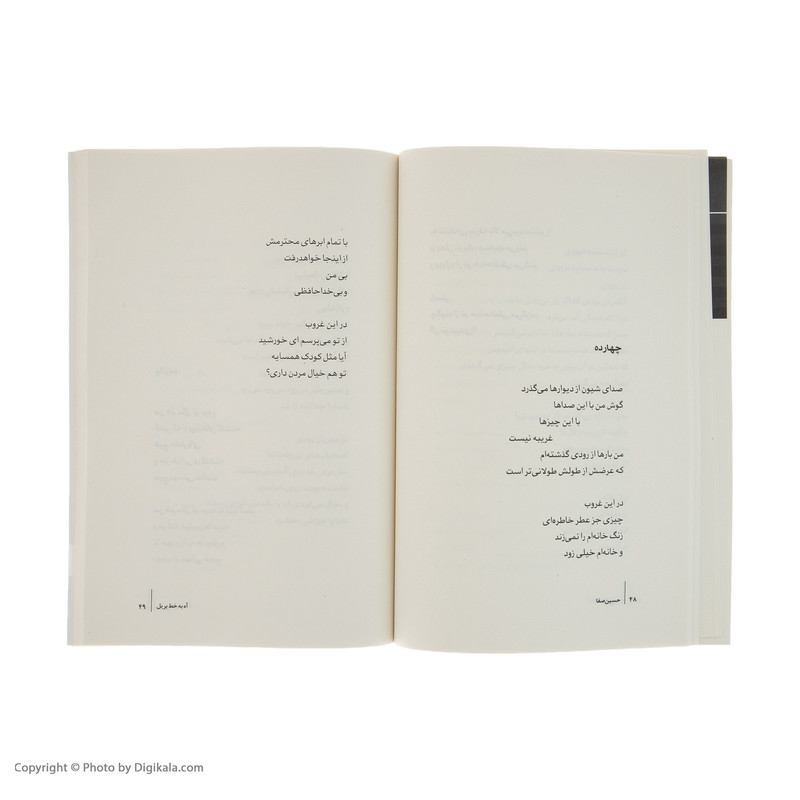 چهارده
صدای شیون از دیوارها می‌گذرد
گوش من با این صداها
با این چیزها
غریبه نیست
من بارها از رودی گذشته‌ام
که عرضش از طولش طولانی‌تر است
در این غروب
چیزی جز عطر خاطره‌ای
زنگ خانه‌ام را نمی‌زند
و خانه‌ام خیلی زود
۴۸ | حسین صفا
با تمام ابرهای محترمش
از اینجا خواهد رفت
بی من
و بی‌خداحافظی
در این غروب
از تو می‌پرسم ای خورشید
آیا مثل کودک همسایه
تو هم خیال مردن داری؟
آه به خط بریل | ۴۹
Copyright © Photo by Digikala.com